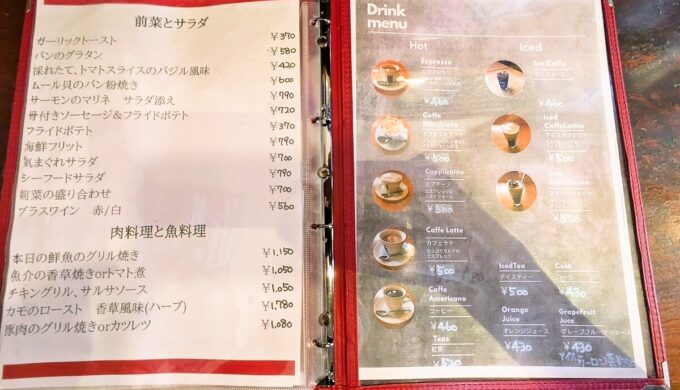 前菜とサラダ
ガーリックトースト ¥370
パンのグラタン ¥580
採れたて、トマトスライスのバジル風味 ¥420
ムール貝のパン粉焼き ¥600
サーモンのマリネ サラダ添え ¥790
骨付きソーセージ&フライドポテト ¥720
フライドポテト ¥370
海鮮フリット ¥790
気まぐれサラダ ¥700
シーフードサラダ ¥790
前菜の盛り合わせ ¥700
グラスワイン 赤/白 ¥560
肉料理と魚料理
本日の鮮魚のグリル焼き ¥1,150
魚介の香草焼きorトマト煮 ¥1,050
チキングリル、サルサソース ¥1,050
カモのロースト 香草風味(ハーブ) ¥1,780
豚肉のグリル焼きorカツレツ ¥1,080
Drink
menu
Hot
Espresso
エスプレッソ
¥460
Caffe
Macchiato
¥500
Cappuchino
カプチーノ
Caffe Latte
カフェラテ
¥500
Caffe
Americano
コーヒー
¥460
Teas
紅茶
Iced
Ice Caffe
アイスコーヒー
¥460
Iced
CaffeLattte
アイスカフェラテ
¥500
Iced
IcedTea
アイスティー
¥500
Cola
コーラ
¥430
Orange
Juice
オレンジジュース
¥430
GrapeFruit
Juice
グレープフルーツジュース
¥430